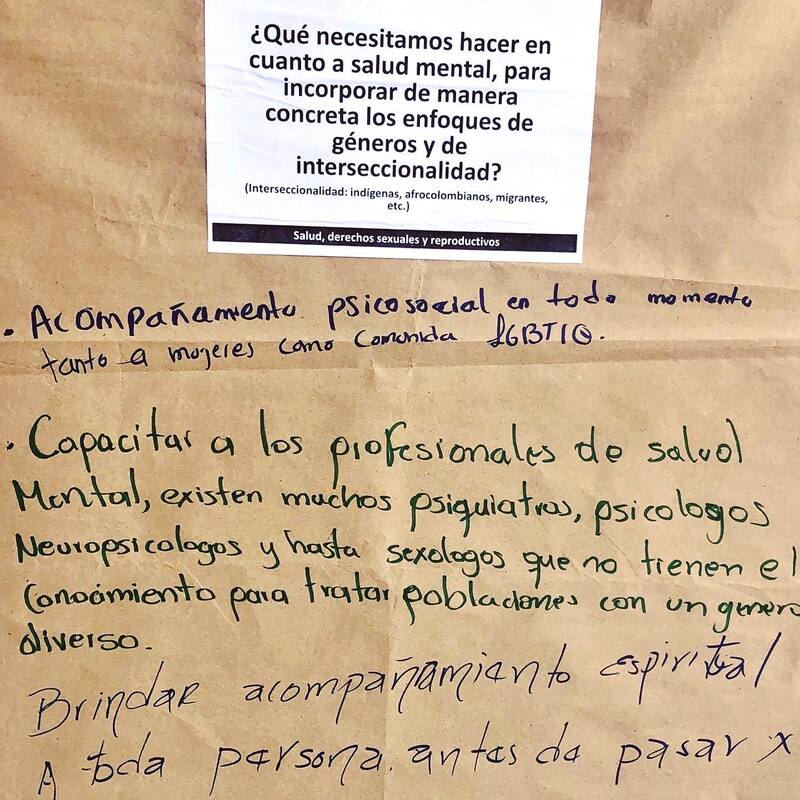 ¿Qué necesitamos hacer en
cuanto a salud mental, para
incorporar de manera
concreta los enfoques de
géneros y de
interseccionalidad?
(Interseccionalidad: indígenas, afrocolombianos, migrantes,
etc.)
Salud, derechos sexuales y reproductivos
• Acompañamento psicosocial en todo momento
tanto a mujeres como comunida LGBTIQ.
• Capacitar a los profesionales de salud
Mental, existen muchos psiquiatras, psicologos
Neuropsicologos y hasta sexologos que no tienen el
conocimiento para tratar poblaciones con un genero
diverso.
Brindar acompañamiento espiritual
A toda persona antes de pasar x